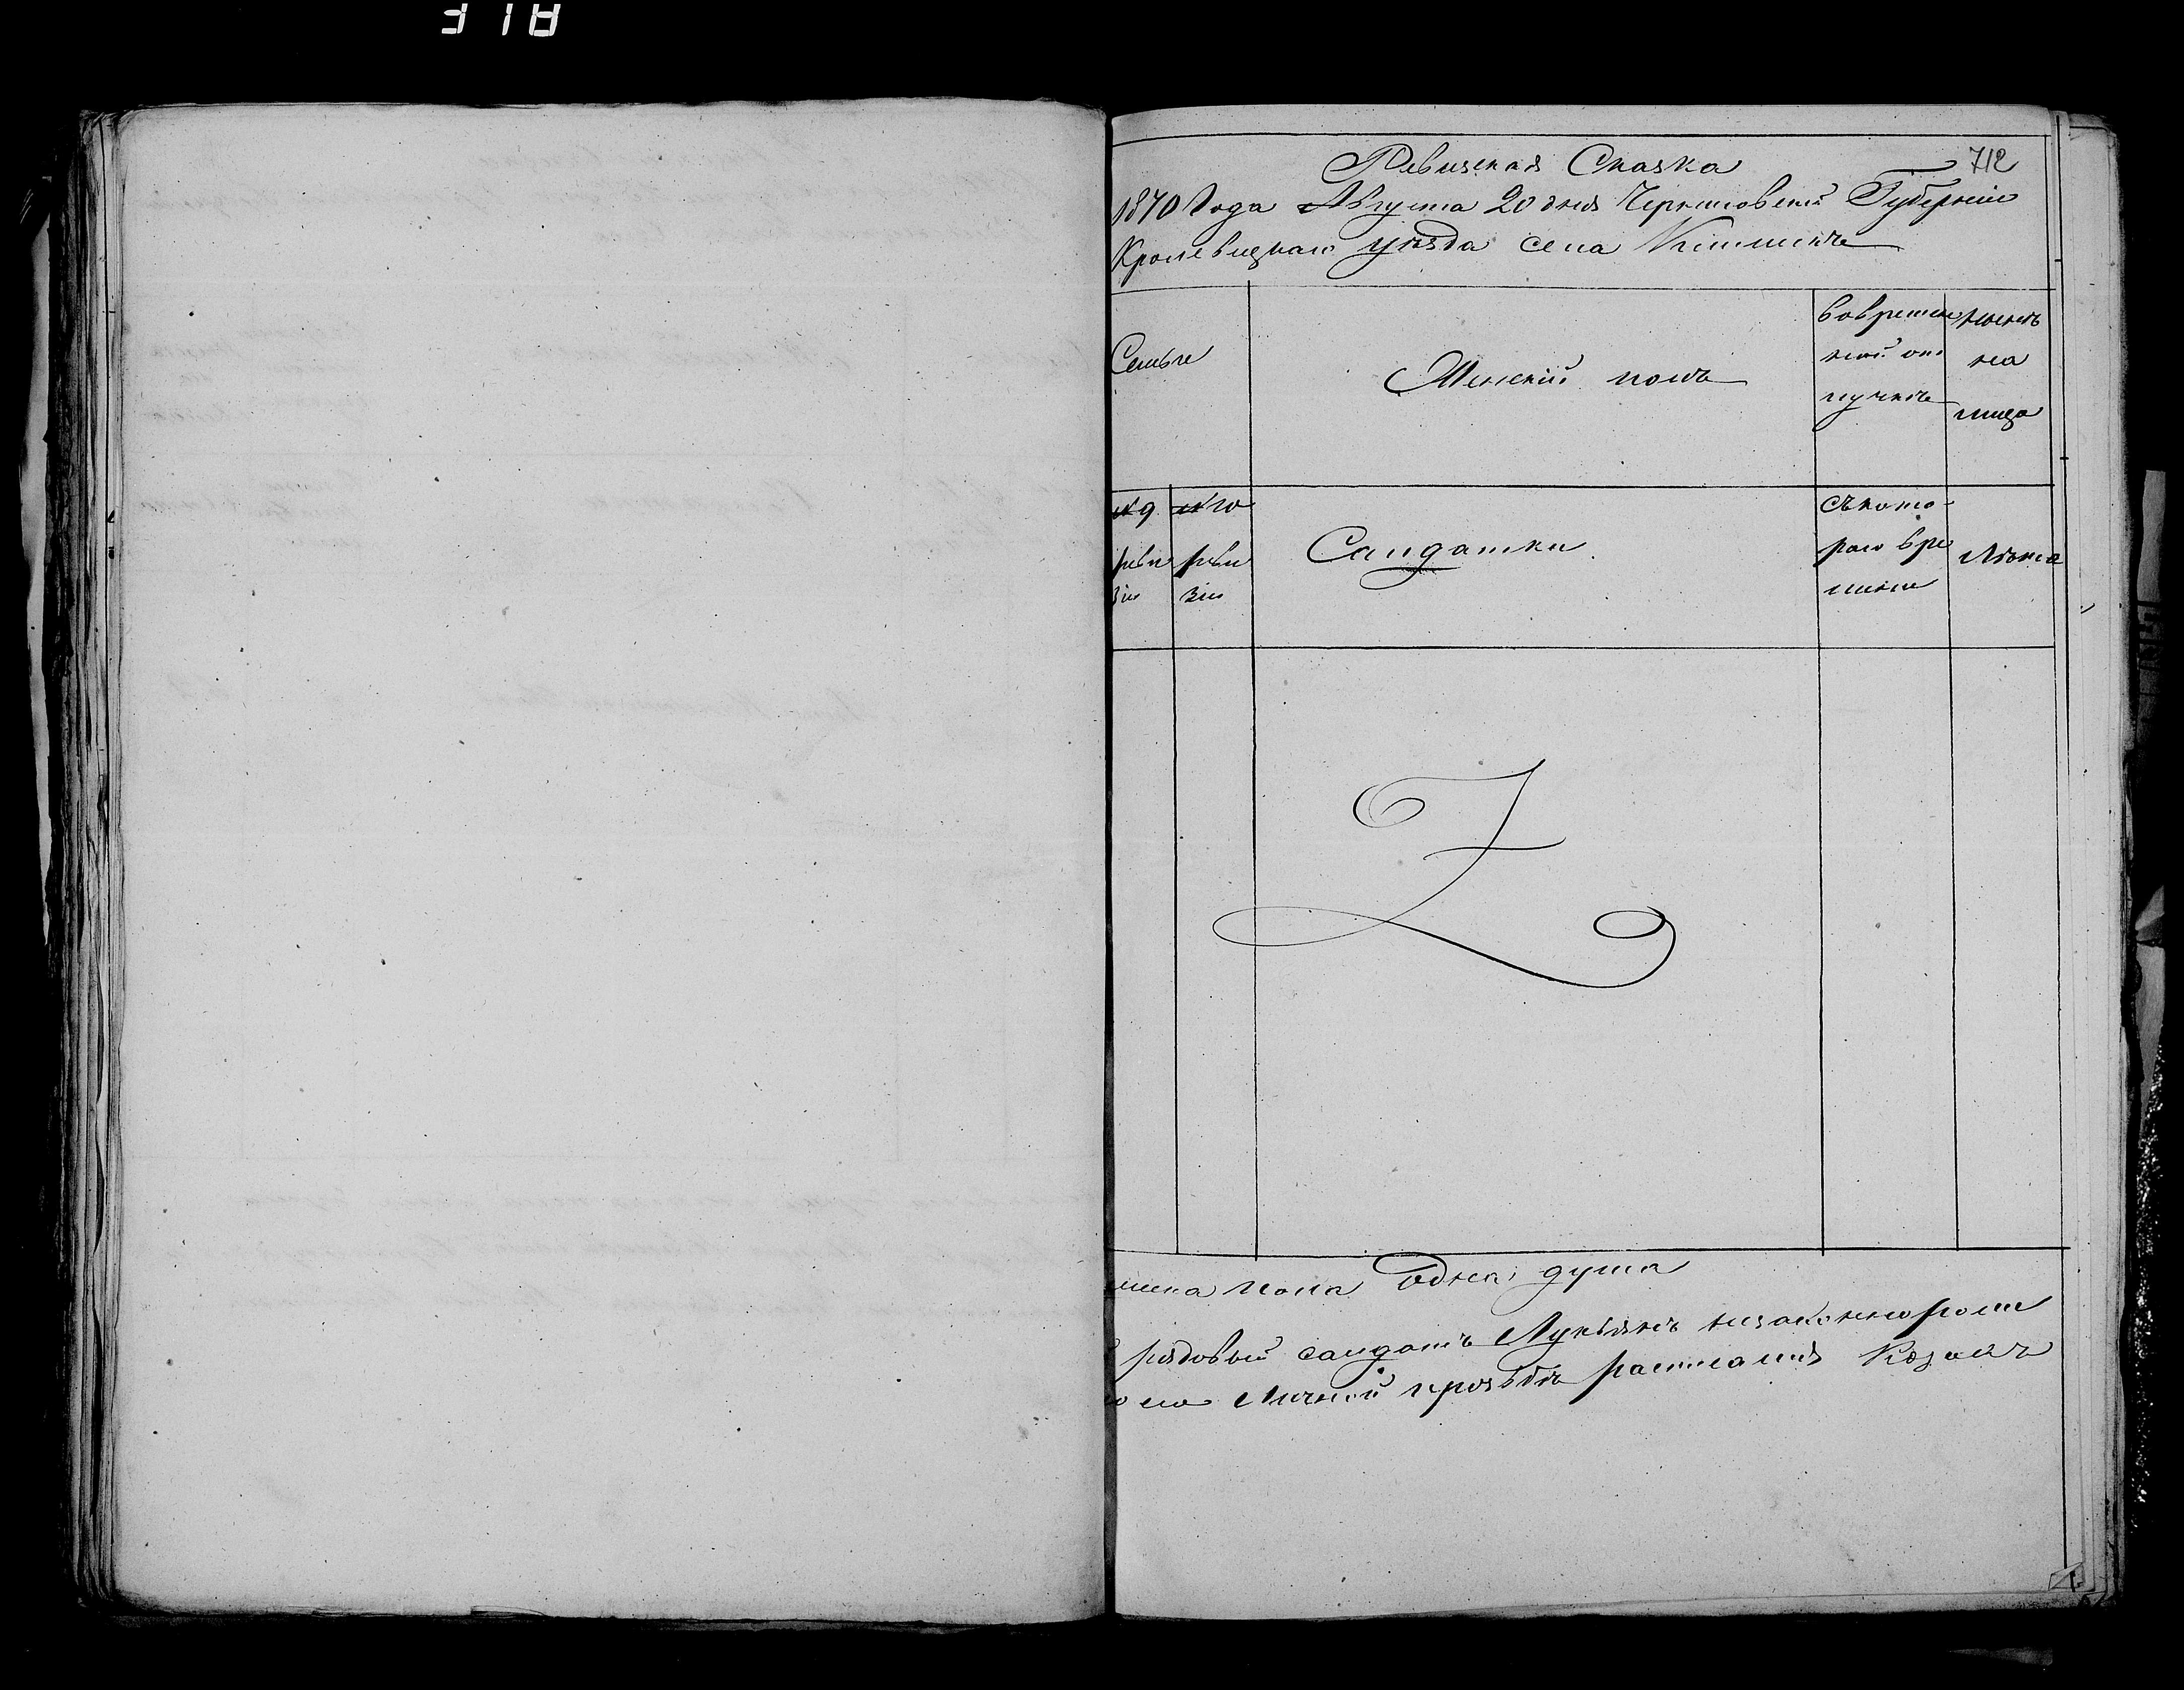 318
712
Ревизская Сказка
1870 Года Августа 20 дня Черниговской Губерніи
Кролевецкаго уезда села
Семьи
Женскій полъ
вовремен
ной от
лучке
ныне
на
лицо
№ 9
реви
зіи
№ 10
реви
зіи
Салдатки
съкото-
раго вре
мини
Лѣта
пола Одна душа
рядовый салдатъ Лукьянъ незаконнорож
его личной прозьбе росписался Козакъ